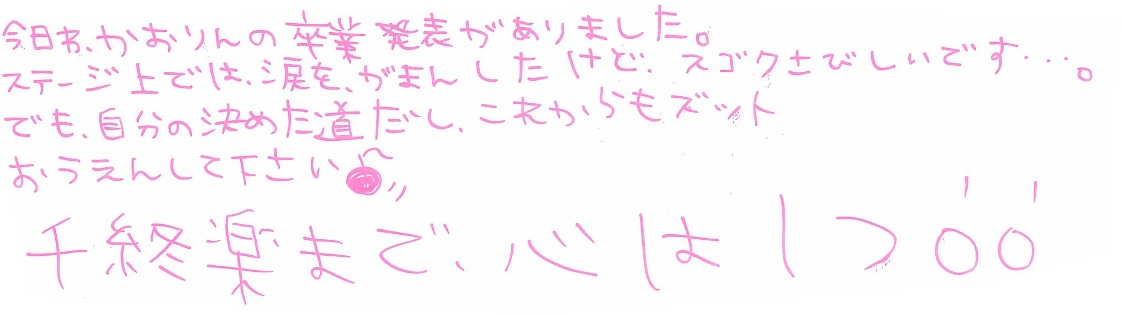 今日わ、かおりんの卒業発表がありました。
ステージ上では、涙を、がまんしたけど、スゴクさびしいです…。
でも、自分の決めた道だし、これからもズット
おうえんして下さい
千終楽まで、心は1つ!!